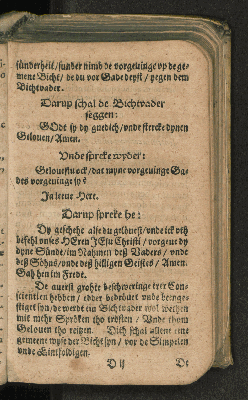 sünderheit / sunder nimb de vorgeuinge vp de ge-
mene Bicht / de du vor Gade deyst / yegen dem
Bichtvader.
Darup schal de Bichtvader
seggen:
GOdt sy dy gnedich / vnde stercke dynen
Gelouen / Amen.
Vnde spreke wyder:
Gelouestu ock / dat myne vorgeuinge Ga-
des vorgeuinge sy?
Ja leue Here.
Darup spreke he:
Dy geschehe alse du gelöuest / vnde ick vth
befehl vnses HEren JEsu Christi / vorgeue dy
dyne Sünde / im Nahmen deß Vaders / vnde
deß Söhns / vnde deß hilligen Geistes / Amen.
Gah hen im Frede.
De auerst grohte beschweringe erer Con-
scientien hebben / edder bedröuet vnde
syn / de werdt ein Bichtvader wol wethen
mit mehr Spröken tho trösten / Vnde thom
Gelouen tho reitzen. Dith schal allene eine
gemeene wyse der Bicht syn / vor de Simpelen
vnde Einfoldigen.
D ij
De